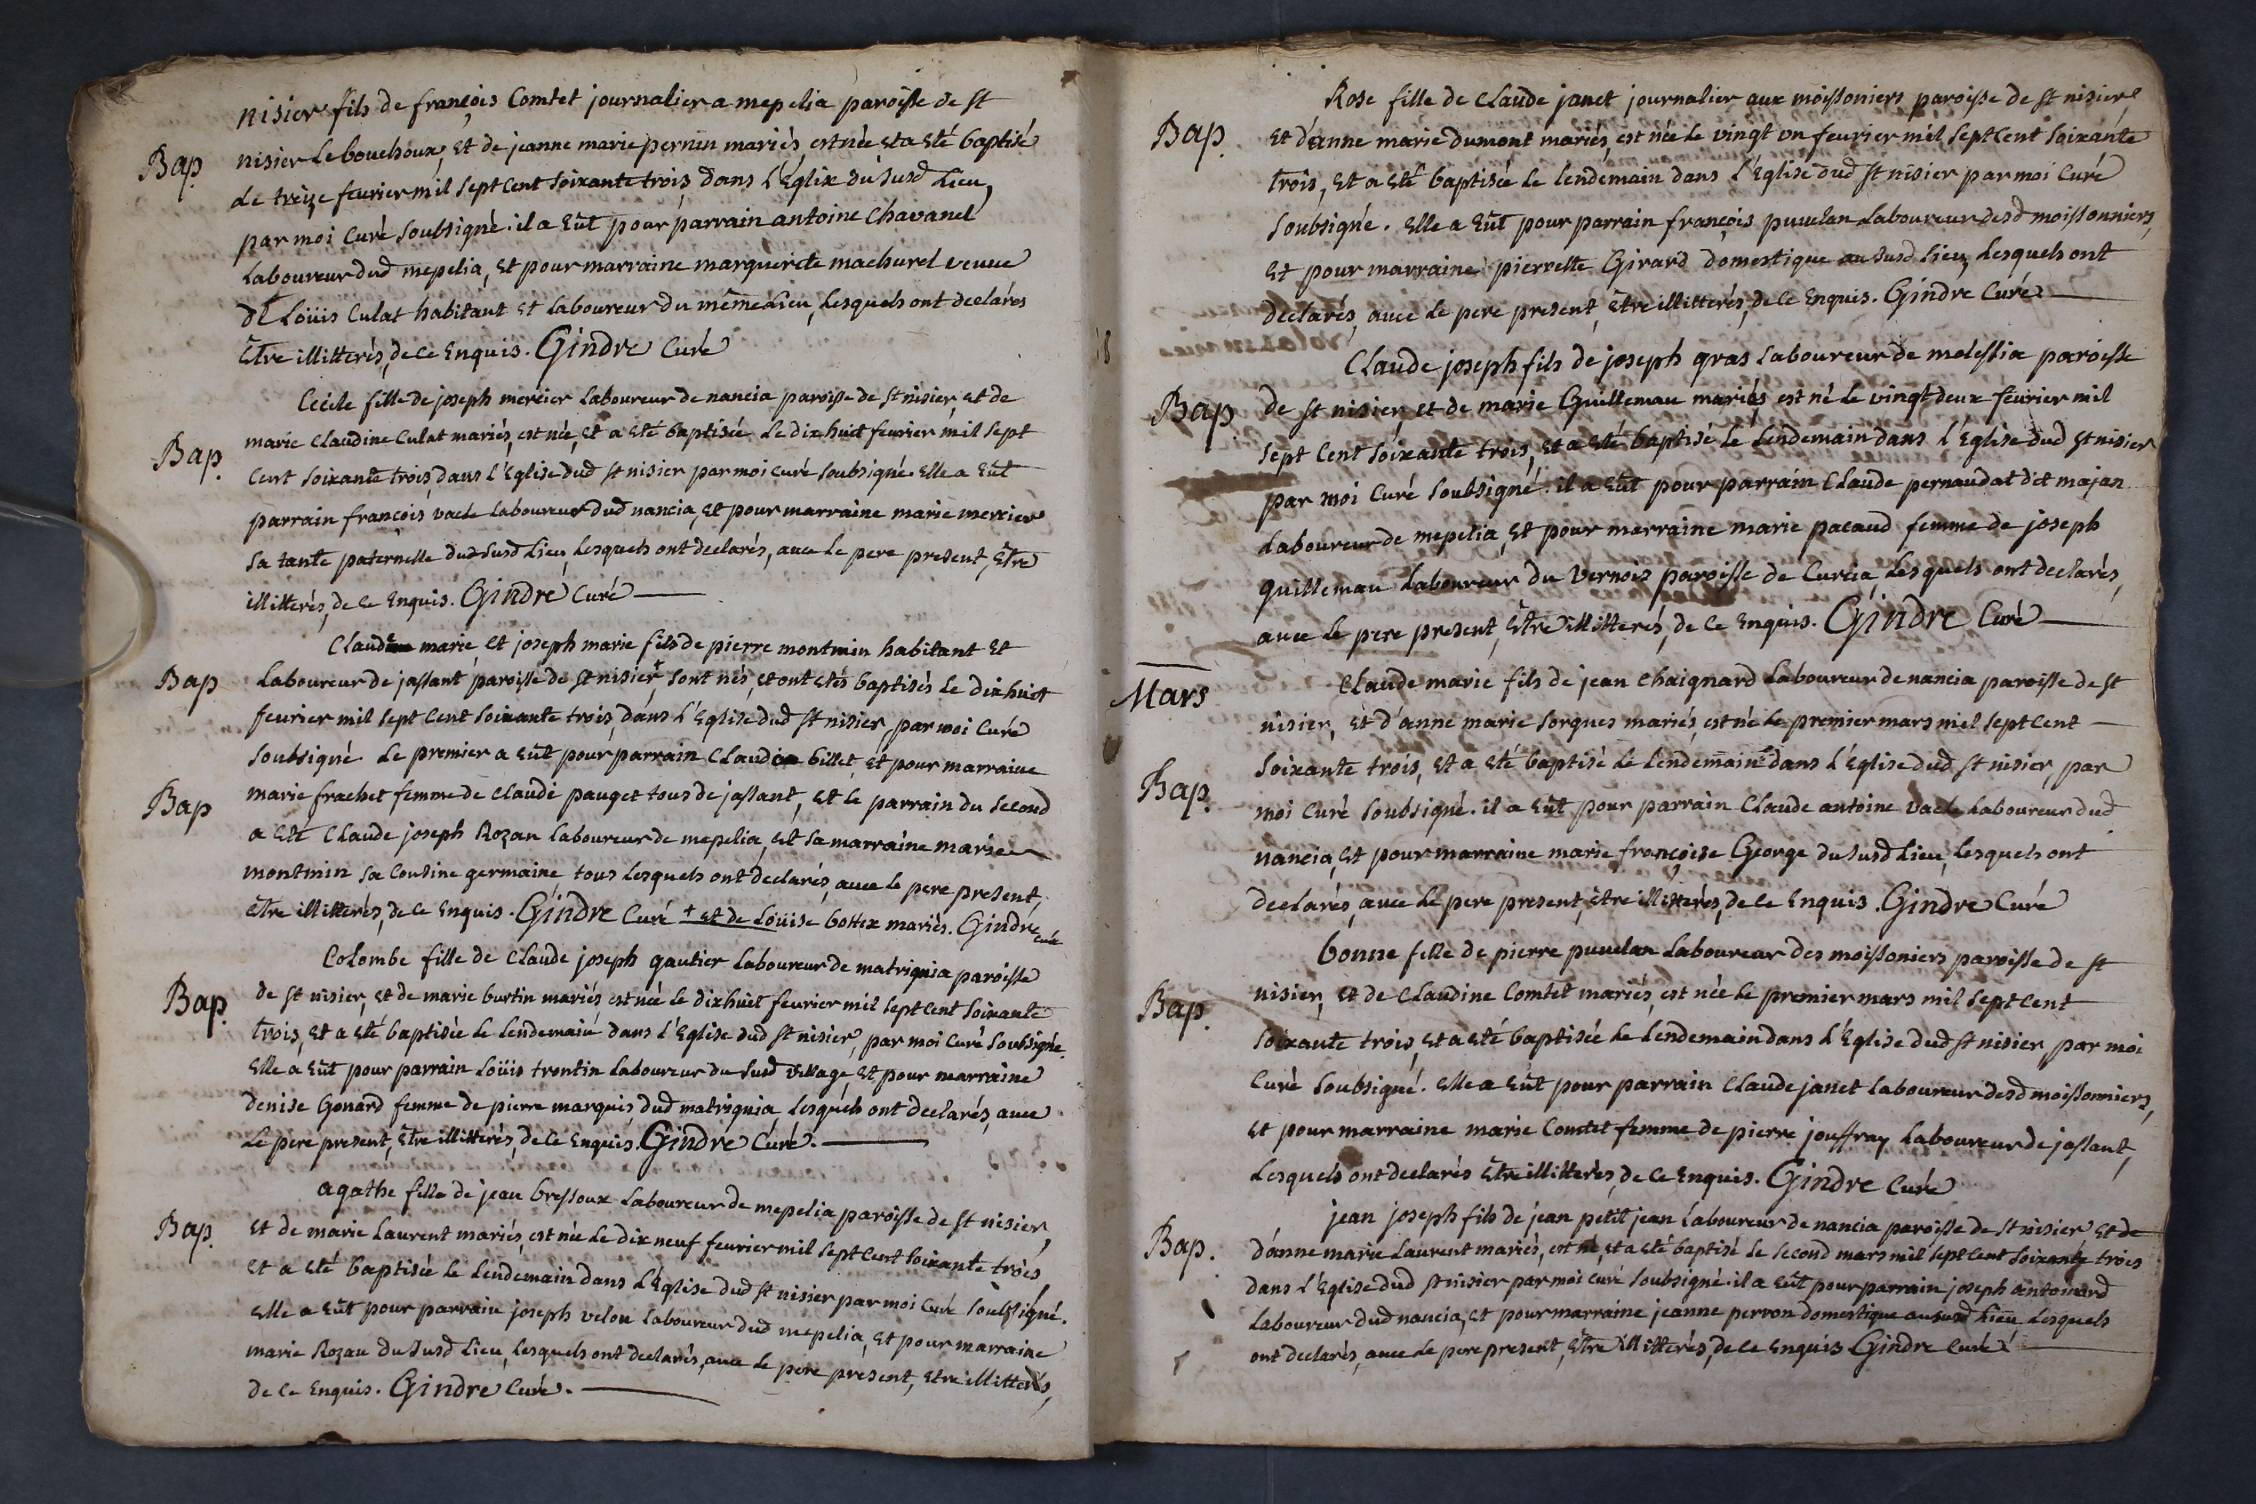 nisier fils de françois Comtet journalier a mepelia paroisse de st
Bap. nisier le bouchoux, et de jeanne marie pernin mariés, est née et a eté baptisé
le treize fevrier mil sept cent soixante trois, dans l'Eglise du susd lieu,
par moi Curé soubsigné. il a Eût pour parrain antoine Chavanel
Laboureur dud mepelia, et pour marraine marguerite machurel veuve
de Loüis Culat habitant et Laboureur du même lieu, Lesquels ont declarés
Etre illitterés, de ce Enquis. Gindre Curé
Cecile fille de joseph mercier Laboureur de nancia paroisse de st nisier, et de
Bap. marie claudine Culat mariés, est née, et a eté baptisée le dix huit fevrier mil sept
cent soixante trois, dans l'Eglise dud st nisier par moi curé soubsigné. Elle a Eût
parrain françois vacle Laboureur dud nancia, et pour marraine marie mercier
sa tante paternelle dud susd Lieu, Lesquels ont declarés, avec le pere present, Etre
illitterés, de ce Enquis. Gindre Curé
Claude marie, et joseph marie fils de pierre montmin habitant et
Bap Laboureur de jassant paroisse de st nisier,+ sont nés, et ont etés baptisés le dix huit
fevrier mil sept cent soixante trois, dans l'Eglise dud st nisier, par moi Curé
soubsigné Le premier a Eût pour parrain Claude billet, et pour marraine
Bap marie frachet femme de claude pauget tous de jassant, et le parrain du second
a eté Claude joseph Rozan Laboureur de mepelia, et sa marraine marie
montmin sa cousine germaine tous Lesquels ont declarés, avec le pere present,
être illitterés, de ce Enquis. Gindre Curé + et de Loüise bottex mariés. Gindre curé
Colombe fille de claude joseph gautier Laboureur de matrignia paroisse
Bap. de st nisier, et de marie burtin mariés est née le dix huit fevrier mil sept cent soixante
trois, et a eté baptisée le lendemain dans l'Eglise dud st nisier, par moi Curé soubsigné.
Elle a Eût pour parrain Loüis trontin Laboureur du susd village, et pour marraine
denise Gonard femme de pierre marquis dud matrignia Lesquels ont declarés, avec
le pere present, Etre illitterés, de ce Enquis. Gindre Curé.
agathe fille de jean bressoux Laboureur de mepelia paroisse de st nisier,
Bap. et de marie Laurent mariés, est née le dix neuf fevrier mil sept cent soixante trois,
et a eté baptisée le lendemain dans l'Eglise dud st nisier par moi Curé soubsigné.
Elle a Eût pour parrain joseph velon Laboureur dud mepelia, et pour marraine
marie Rozan du susd Lieu, Lesquels ont declarés, avec le pere present, Etre illitterés,
de ce Enquis. Gindre Curé.
Rose fille de Claude janet journalier aux moissoniers paroisse de st nisier
Bap. et d'anne marie dumont mariés, est née le vingt un fevrier mil sept cent soixante
trois, et a eté baptisée le lendemain dans l'Eglise dud st nisier par moi Curé
soubsigné. Elle a Eût pour parrain françois puvelan Laboureur desd moissonniers,
et pour marraine pierrette Girard domestique au susd lieu, Lesquels ont
declarés, avec le pere present, Etre illitterés, de ce Enquis. Gindre Curé
Claude joseph fils de joseph gras Laboureur de molessia paroisse
Bap. de st nisier, et de marie Guillemau mariés, est né le vingt deux fevrier mil
sept cent soixante trois, et a eté baptisé le lendemain dans l'Eglise dud st nisier
par moi Curé soubsigné. il a Eût pour parrain Claude pernaudat dit majan
Laboureur de mepelia, et pour marraine marie pacaud femme de joseph
guillemau Laboureur du vernois paroisse de Curcia Lesquels ont declarés,
avec le pere present, Etre illitterés, de ce Enquis. Gindre Curé
Mars
Claude marie fils de jean chaignard Laboureur de nancia paroisse de st
nisier, et d'anne marie sorgues mariés, est né le premier mars mil sept cent
Bap. soixante trois, et a eté baptisé le lendemain dans l'Eglise dud st nisier, par
moi Curé soubsigné. il a Eût pour parrain Claude antoine vacle Laboureur dud
nancia, et pour marraine marie françoise George du susd Lieu, Lesquels ont
declarés, avec le pere present, être illitterés, de ce Enquis. Gindre Curé
bonne fille de pierre puvelan Laboureur des moissoniers paroisse de st
Bap. nisier, et de Claudine Comtet mariés, est née le premier mars mil sept cent
soixante trois, et a eté baptisée le lendemain dans l'Eglise dud st nisier, par moi
Curé soubsigné. Elle a Eût pour parrain Claude janet Laboureur desd moissonniers,
et pour marraine marie Comtet femme de pierre jouffray Laboureur de jassant,
Lesquels ont declarés Etre illitterés, de ce Enquis. Gindre Curé
jean joseph fils de jean petit jean Laboureur de nancia paroisse de st nisier et de
Bap. d'anne marie Laurent mariés, est né, et a eté baptisé le second mars mil sept cent soixante trois
dans l'Eglise dud st nisier par moi curé soubsigné. il a Eût pour parrain joseph antomard
Laboureur dud nancia, et pour marraine jeanne perron domestique au susd lieu Lesquels
ont declarés, avec le pere present, Etre illitterés, de ce Enquis Gindre Curé